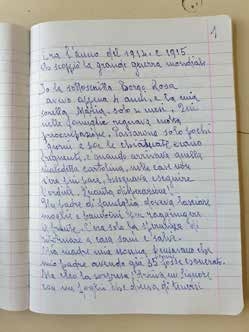 1
Era l'anno del 1914 e 1915
che scoppiò la grande guerra mondiale.
Io la sottoscritta Borgo Rosa
avevo appena 4 anni, e la mia
sorella Maria solo 2 mesi,
nelle famiglie regnava molta
preoccupazione. Passarono solo pochi
giorni e poi le chiamate erano
frequenti, e quando arrivava quella
maledetta cartolina, nelle case non
c'era più pace, bisognava eseguire
l'ordine
Un padre di famiglia doveva lasciare
moglie e bambini e raggiungere
il fronte. C'era solo la speranza di
ritornare a casa sani e salvi.
Mia madre mia nonna pensavano che
mio padre avendo già 35
Ma ecco la sorpresa. Arriva un signore
con un foglio che diceva di tenersi